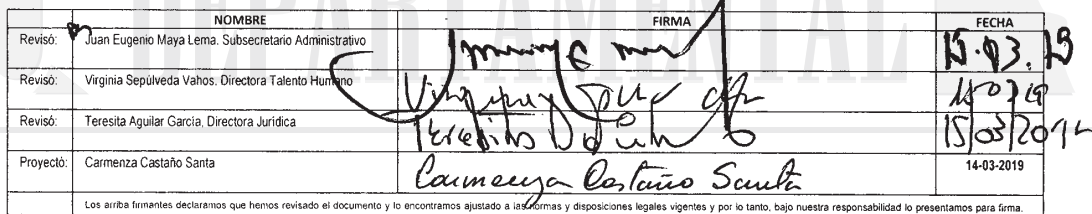 DEPARTAMENTAL
NOMBRE FIRMA FECHA
Revisó: Juan Eugenio Maya Lema. Subsecretario Administrativo 15.03.19
Revisó: Virginia Sepúlveda Vahos. Directora Talento Humano
Revisó: Teresita Aguilar García, Directora Jurídica 15/03/2019
Proyectó: Carmenza Castaño Santa Carmenza Castaño Santa 14-03-2019
Los arriba firmantes declaramos que hemos revisado el documento y lo encontramos ajustado a las normas y disposiciones legales vigentes y por lo tanto, bajo nuestra responsabilidad lo presentamos para firma.